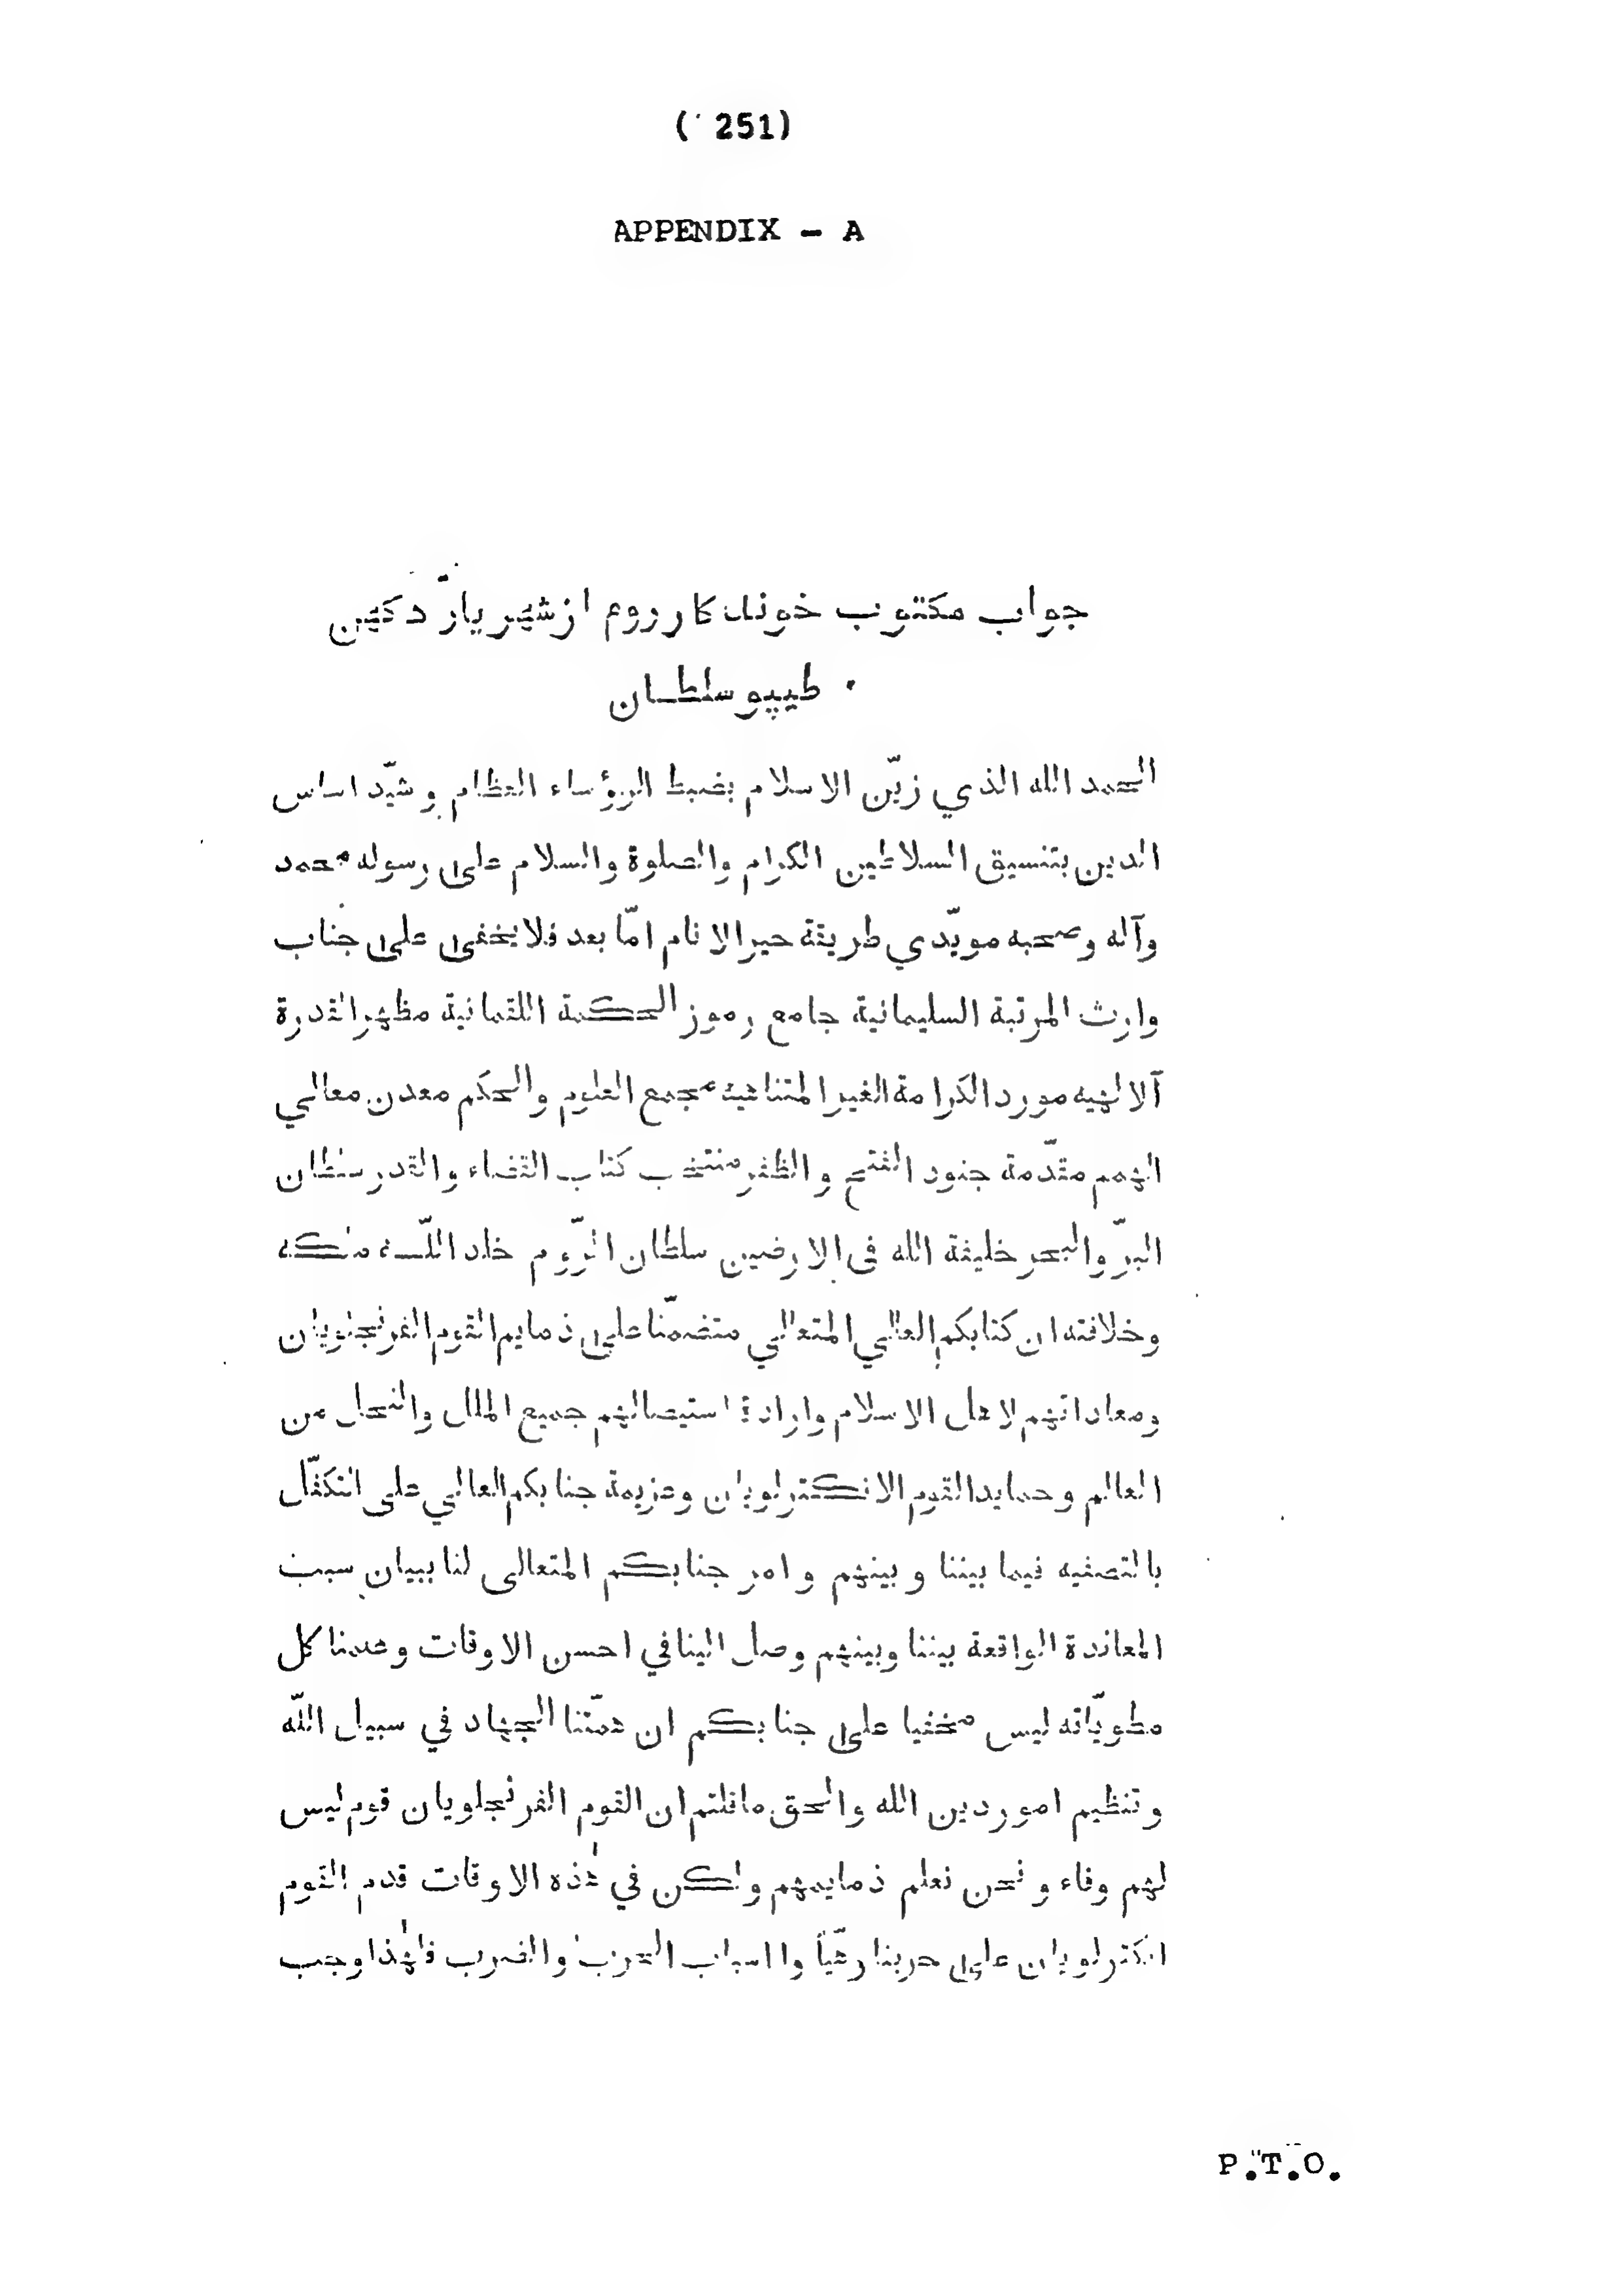 ( 251)
APPENDIX - A
جواب مكتوب خوندكار روم از شهريار دكهن
طيپو سلطان
الحمد الله الذي زيّن الاسلام بضبط الرؤساء العظام وشيّد اساس
الدين بتنسيق السلاطين الكرام والصلوة والسلام على رسوله محمد
وآله وصحبه مويّدي طريقة خير الانام امّا بعد فلا يخفى على جناب
وارث المرتبة السليمانية جامع رموز الحكمة اللقمانية مظهر القدرة
آلالهيه مورد الكرامة الغير المتناهية مجمع العلوم والحكم معدن معالي
الهمم مقدّمة جنود الفتح والظفر منتخب كتاب القضاء والقدر سلطان
البرّ والبحر خليفة الله فى الارضين سلطان الرّوم خلد اللّه ملكه
وخلافته ان كتابكم العالي المتعالي متضمّنا على ذمايم القوم الفرنجلويان
ومعاداتهم لاهل الاسلام وارادة استيصالهم جميع الملل والنحل من
العالم وحمايد القوم الانكترلويان وعزيمة جنابكم العالي على التكفّل
بالتصفيه فيما بيننا وبينهم وامر جنابكم المتعالى لنا ببيان سبب
المعاندة الواقعة بيننا وبينهم وصل الينا في احسن الاوقات وعلمنا كل
مطويّاته ليس مخفيا على جنابكم ان همّتنا الجهاد في سبيل اللّه
وتنظيم امور دين الله والحق ما قلتم ان القوم الفرنجلويان قوم ليس
لهم وفاء ونحن نعلم ذمايمهم ولكن في هٰذه الاوقات قدم القوم
انكترلويان على حربنا وااسباب الحرب والضرب فلهٰذا وجب
P.T.O.